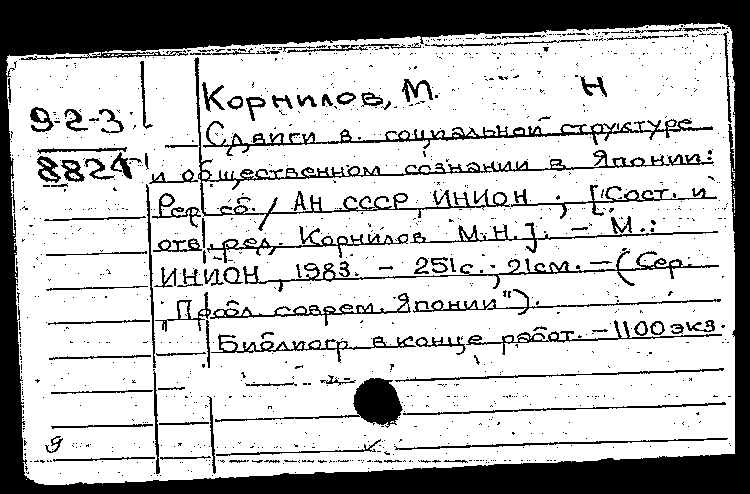 Корнилов, М. Н
9-2-3
8824
Сдвиги в социальной структуре
и общественном сознании в Японии:
Реф сб. / АН СССР, ИНИОН ; [Сост. и
отв. ред. Корнилов М.Н.]. – М.:
ИНИОН, 1983. – 251с.; 21см. – (Сер.
"Пробл. соврем. Японии").
Библиогр. в конце работ. – 1100 экз.